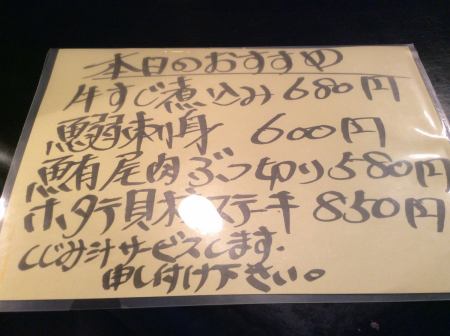 本日のおすすめ
牛すじ煮込み 680円
鰯刺身 600円
鮪尾肉ぶつ切り 580円
ホタテ貝柱ステーキ 850円
しじみ汁サービスします.
申し付け下さい。